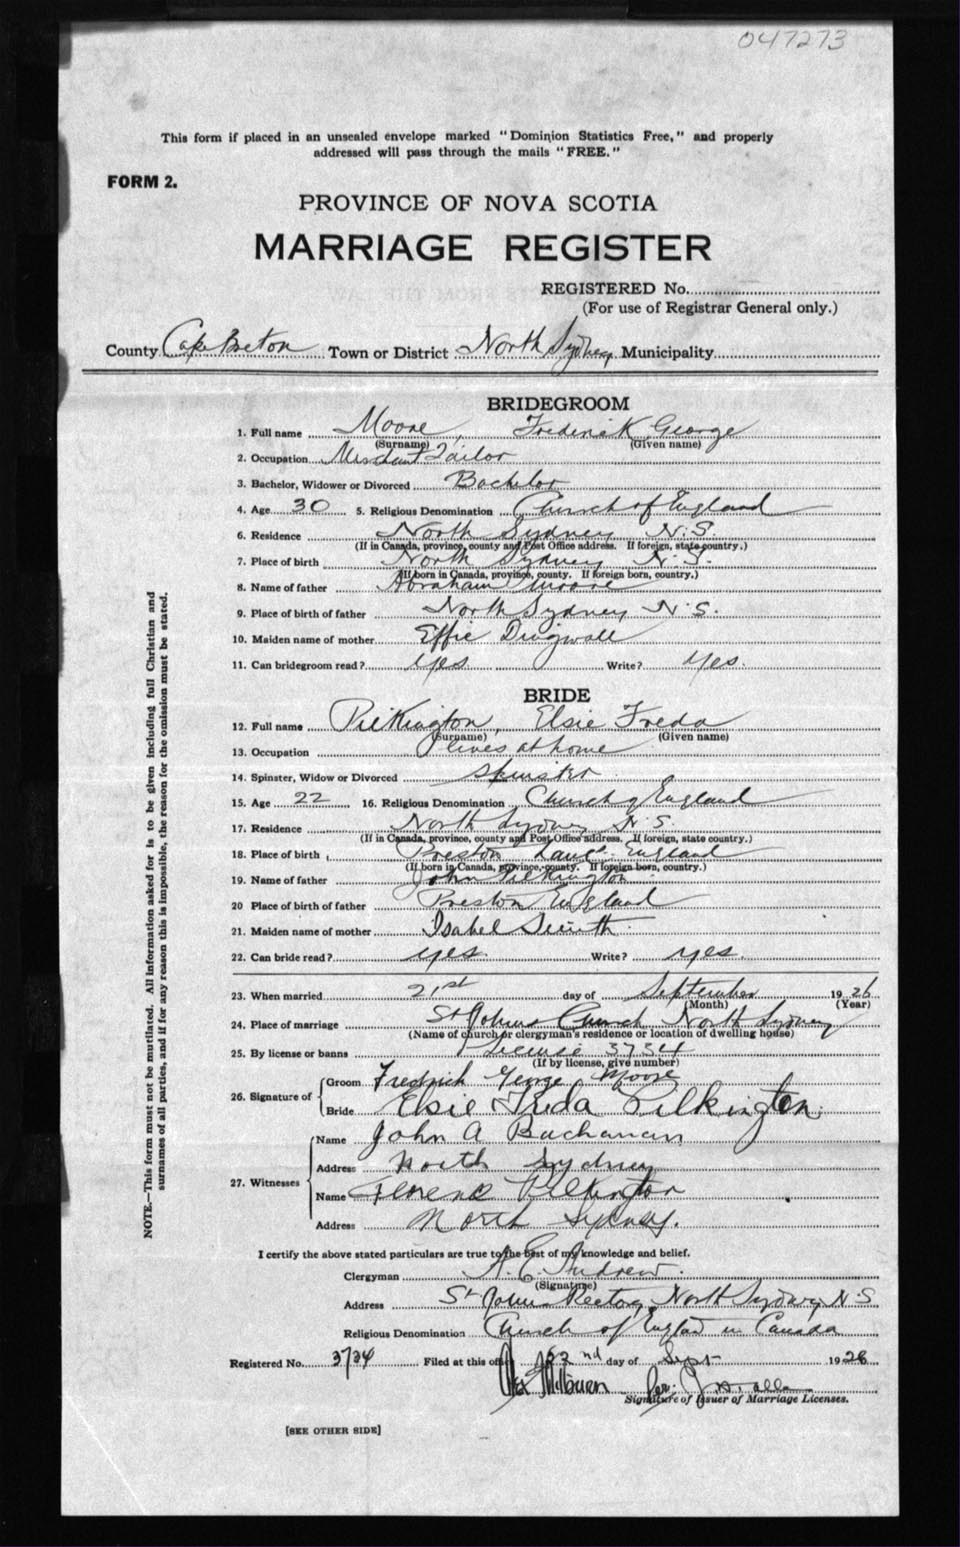 047273
This form if placed in an unsealed envelope marked "Dominion Statistics Free," and properly
addressed will pass through the mails "FREE."
FORM 2.
PROVINCE OF NOVA SCOTIA
MARRIAGE REGISTER
REGISTERED No.
(For use of Registrar General only.)
County Cape Breton Town or District North Sydney Municipality
BRIDEGROOM
1. Full name Moore, Frederick George
(Surname) (Given name)
2. Occupation Merchant Tailor
3. Bachelor, Widower or Divorced Bachelor
4. Age 30 5. Religious Denomination Church of England
6. Residence North Sydney N.S.
(If in Canada, province, county and Post Office address. If foreign, state country.)
7. Place of birth North Sydney N.S.
(If born in Canada, province, county. If foreign born, country.)
8. Name of father Abraham Moore
9. Place of birth of father North Sydney N.S.
10. Maiden name of mother Effie Dingwall
11. Can bridegroom read? yes Write? yes.
BRIDE
12. Full name Pilkington, Elsie Freda
(Surname) (Given name)
13. Occupation lives at home
14. Spinster, Widow or Divorced Spinster
15. Age 22 16. Religious Denomination Church of England
17. Residence North Sydney N.S.
(If in Canada, province, county and Post Office address. If foreign, state country.)
18. Place of birth Preston Lanc. England
(If born in Canada, province, county. If foreign born, country.)
19. Name of father John Pilkington
20 Place of birth of father Preston England
21. Maiden name of mother Isabel Smith
22. Can bride read? yes. Write? yes.
23. When married 21st day of September 1926
(Month) (Year)
24. Place of marriage St Johns Church North Sydney
(Name of church or clergyman's residence or location of dwelling house)
25. By license or banns License 3734
(If by license, give number)
26. Signature of Groom Fredrick George Moore
Bride Elsie Freda Pilkington.
27. Witnesses Name John A Buchanan
Address North Sydney
Name Florence Pilkington
Address North Sydney.
I certify the above stated particulars are true to the best of my knowledge and belief.
Clergyman A. E. Andrew.
(Signature)
Address St Johns Rectory, North Sydney, N.S
Religious Denomination Church of England in Canada
Registered No. 3734 Filed at this office 22nd day of Sept 1926
Alex Milburn Per.
Signature of Issuer of Marriage Licenses.
[SEE OTHER SIDE]
NOTE.—This form must not be mutilated. All information asked for is to be given including full Christian and
surnames of all parties, and if for any reason this is impossible, the reason for the omission must be stated.